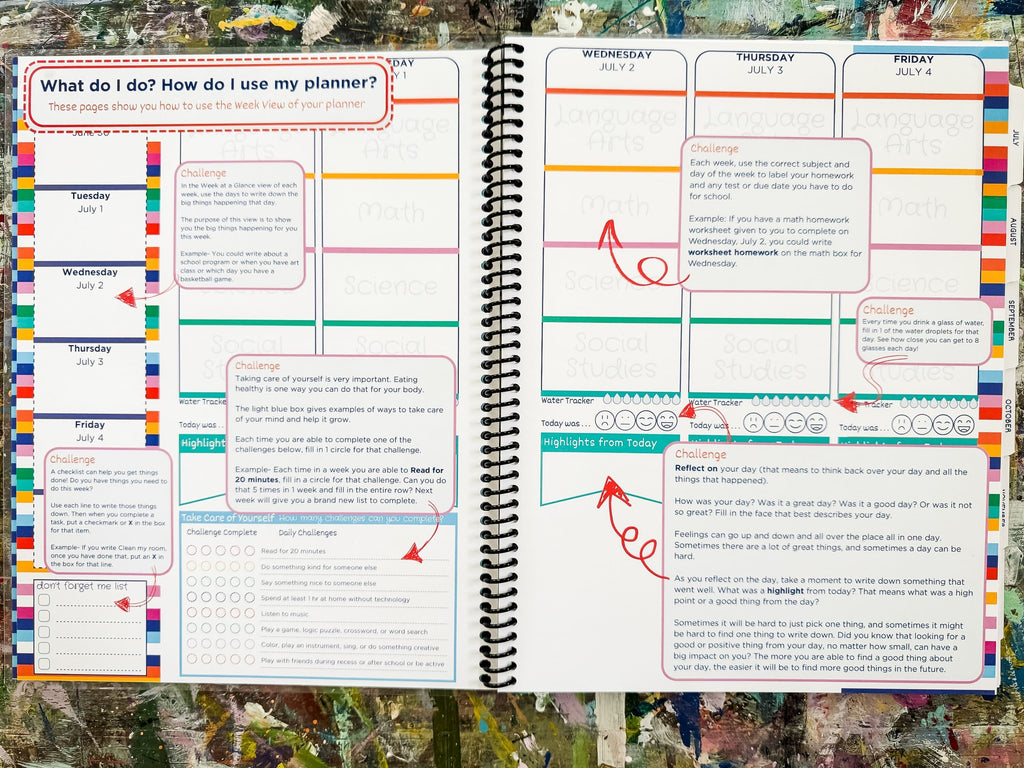 What do I do? How do I use my planner?
These pages show you how to use the Week View of your planner
June 30
Tuesday
July 1
Wednesday
July 2
Thursday
July 3
Friday
July 4
Challenge
In the Week at a Glance view of each
week, use the days to write down the
big things happening that day.
The purpose of this view is to show
you the big things happening for you
this week.
Example- You could write about a
school program or when you have art
class or which day you have a
basketball game.
Arts
Language
Arts
Math
Science
Challenge
Taking care of yourself is very important. Eating
healthy is one way you can do that for your body.
The light blue box gives examples of ways to take care
of your mind and help it grow.
Each time you are able to complete one of the
challenges below, fill in 1 circle for that challenge.
Example- Each time in a week you are able to Read for
20 minutes, fill in a circle for that challenge. Can you do
that 5 times in 1 week and fill in the entire row? Next
week will give you a brand new list to complete.
Water Tracker
Today was...
Highlights
Challenge
A checklist can help you get things
done! Do you have things you need to
do this week?
Use each line to write those things
down. Then when you complete a
task, put a checkmark or X in the box
for that item.
Example- If you write Clean my room,
once you have done that, put an X in
the box for that line.
don't forget me list
Take Care of Yourself How many challenges can you complete?
Challenge Complete Daily Challenges
Read for 20 minutes
Do something kind for someone else
Say something nice to someone else
Spend at least 1 hr at home without technology
Listen to music
Play a game, logic puzzle, crossword, or word search
Color, play an instrument, sing, or do something creative
Play with friends during recess or after school or be active
WEDNESDAY
JULY 2
THURSDAY
JULY 3
FRIDAY
JULY 4
Language
Arts
Language
Language
Arts
Math
Math
Science
Social
Studies
Social
Studies
Studies
Challenge
Each week, use the correct subject and
day of the week to label your homework
and any test or due date you have to do
for school.
Example: If you have a math homework
worksheet given to you to complete on
Wednesday, July 2, you could write
worksheet homework on the math box for
Wednesday.
Challenge
Every time you drink a glass of water,
fill in 1 of the water droplets for that
day. See how close you can get to 8
glasses each day!
Water Tracker
Water Tracker
Tracker
Today was...
Today was...
Today was...
Highlights from Today
Highlights from Today
Highlights from Today
Challenge
Reflect on your day (that means to think back over your day and all the
things that happened).
How was your day? Was it a great day? Was it a good day? Or was it not
so great? Fill in the face that best describes your day.
Feelings can go up and down and all over the place all in one day.
Sometimes there are a lot of great things, and sometimes a day can be
hard.
As you reflect on the day, take a moment to write down something that
went well. What was a highlight from today? That means what was a high
point or a good thing from the day?
Sometimes it will be hard to just pick one thing, and sometimes it might
be hard to find one thing to write down. Did you know that looking for a
good or positive thing from your day, no matter how small, can have a
big impact on you? The more you are able to find a good thing about
your day, the easier it will be to find more good things in the future.
JULY
AUGUST
SEPTEMBER
OCTOBER